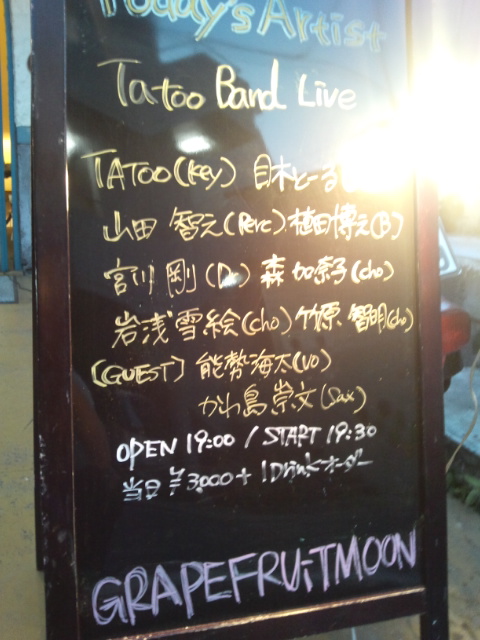 Today's Artist
Tatoo Band Live
TATOO(Key) 目木とーる
山田 智之(Perc) 植田博之(B)
宮川 剛(Dr) 森 加奈子(cho)
岩浅 雪絵(cho) 竹原 智明(cho)
[GUEST] 能勢海太(vo)
かわ島崇文(Sax)
OPEN 19:00 / START 19:30
当日 ¥3,000+1Drinkオーダー
GRAPEFRUiTMOON